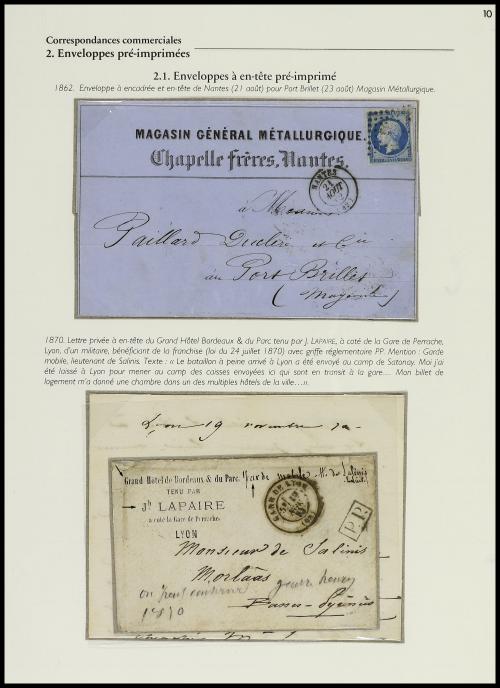 10
Correspondances commerciales
2. Enveloppes pré-imprimées
2.1. Enveloppes à en-tête pré-imprimé
1862. Enveloppe à encadrée et en-tête de Nantes (21 août) pour Port Brillet (23 août) Magasin Métallurgique.
MAGASIN GÉNÉRAL MÉTALLURGIQUE.
Chapelle frères, Nantes.
NANTES
AOUT
à Messieurs
Paillard Ducléré et Cie
au Port Brillet
(Mayenne)
1870. Lettre privée à en-tête du Grand Hôtel Bordeaux & du Parc tenu par J. LAPAIRE, à coté de la Gare de Perrache,
Lyon, d'un militaire, bénéficiant de la franchise (loi du 24 juillet 1870) avec griffe réglementaire PP. Mention : Garde
mobile, lieutenant de Salinis. Texte : « Le bataillon à peine arrivé à Lyon a été envoyé au camp de Satonay. Moi j'ai
été laissé à Lyon pour mener au camp des caisses envoyées ici qui sont en transit à la gare... Mon billet de
logement m'a donné une chambre dans un des multiples hôtels de la ville...».
Lyon 19 novembre
Grand Hotel de Bordeaux & du Parc.
garde mobile - M. de Salinis
TENU PAR
Jh LAPAIRE
a coté la Gare de Perrache.
LYON
GARE DE LYON
P.P.
Monsieur de Salinis
Morlaàs
Basses-Pyrénées
guerre
1870